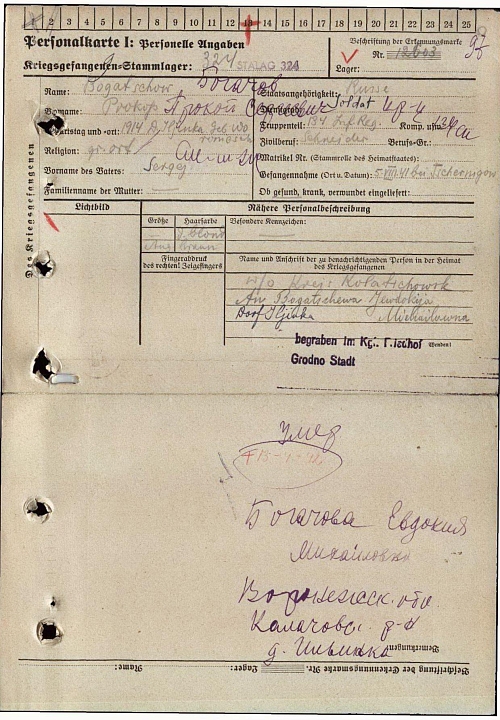 1 2 3 4 5 6 7 8 9 10 11 12 13 14 15 16 17 18 19 20 21 22 23 24 25
Personalkarte I: Personelle Angaben
Kriegsgefangenen-Stammlager: 324 STALAG 324
Beschriftung der Erkennungsmarke
Nr. 12603
Lager:
Des Kriegsgefangenen
Name: Bogatschow Богачев
Vorname: Prokop Прокоп
Geburtstag und -ort: 1914
Religion: gr. ort.
Vorname des Vaters: Sergej
Familienname der Mutter:
Staatsangehörigkeit: Russe
Dienstgrad: Soldat
Truppenteil: 134 Inf. Reg. Komp. usw.:
Zivilberuf: Schneider Berufs-Gr.:
Matrikel Nr. (Stammrolle des Heimatstaates):
Gefangennahme (Ort u. Datum): bei Tschernigow
Ob gesund, krank, verwundet eingeliefert:
Lichtbild
Nähere Personalbeschreibung
Größe Haarfarbe Besondere Kennzeichen:
blond
Fingerabdruck des rechten! Zeigefingers
Name und Anschrift der zu benachrichtigenden Person in der Heimat des Kriegsgefangenen
Kreis Kolatschowsk
An Bogatschewa Jewdokija
Dorf Iljinka Michailowna
begraben im Kgf. Friedhof
Grodno Stadt
Умер
Богачова Евдокия
Михайловна
Воронежск. обл.
Калачовс. р-н
д. Ильинка
Bemerkungen:
Beschriftung der Erkennungsmarke Nr. Lager: Name: